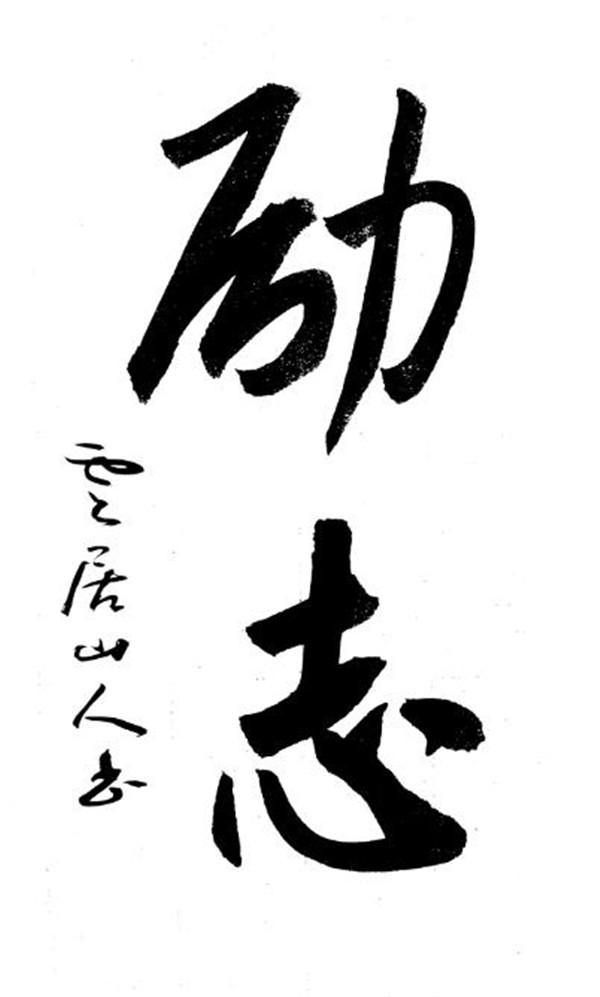 励志
雲居山人书